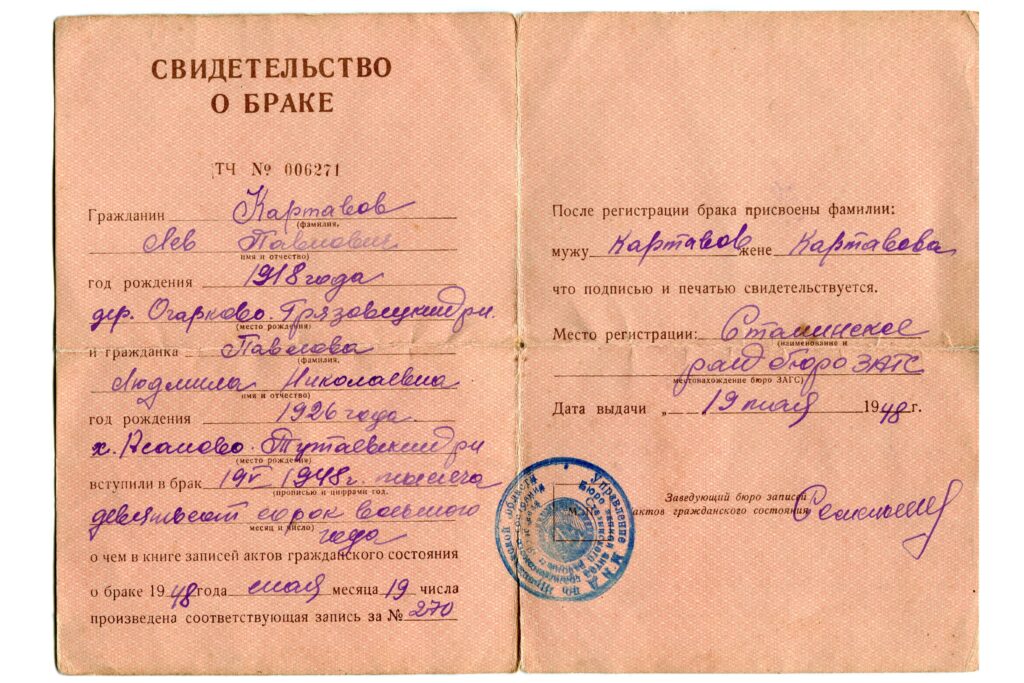 СВИДЕТЕЛЬСТВО
О БРАКЕ
ТЧ № 006271
Гражданин Картавов
(фамилия,
Лев Павлович
имя и отчество)
год рождения 1918 года
дер. Огарково. Грязовецкий р-н.
(место рождения)
и гражданка Павлова
(фамилия,
Людмила Николаевна
имя и отчество)
год рождения 1926 года
Тутаевский р-н
(место рождения)
вступили в брак 19/V 1948 г. тысяча
(прописью и цифрами год,
девятьсот сорок восьмого
месяц и число)
года
о чем в книге записей актов гражданского состояния
о браке 1948 года мая месяца 19 числа
произведена соответствующая запись за № 270
После регистрации брака присвоены фамилии:
мужу Картавов жене Картавова
что подписью и печатью свидетельствуется.
Место регистрации: Сталинское
(наименование и
рай бюро ЗАГС
местонахождение бюро ЗАГС)
Дата выдачи „ 19 мая 1948 г.
Заведующий бюро записей
актов гражданского состояния
Управление